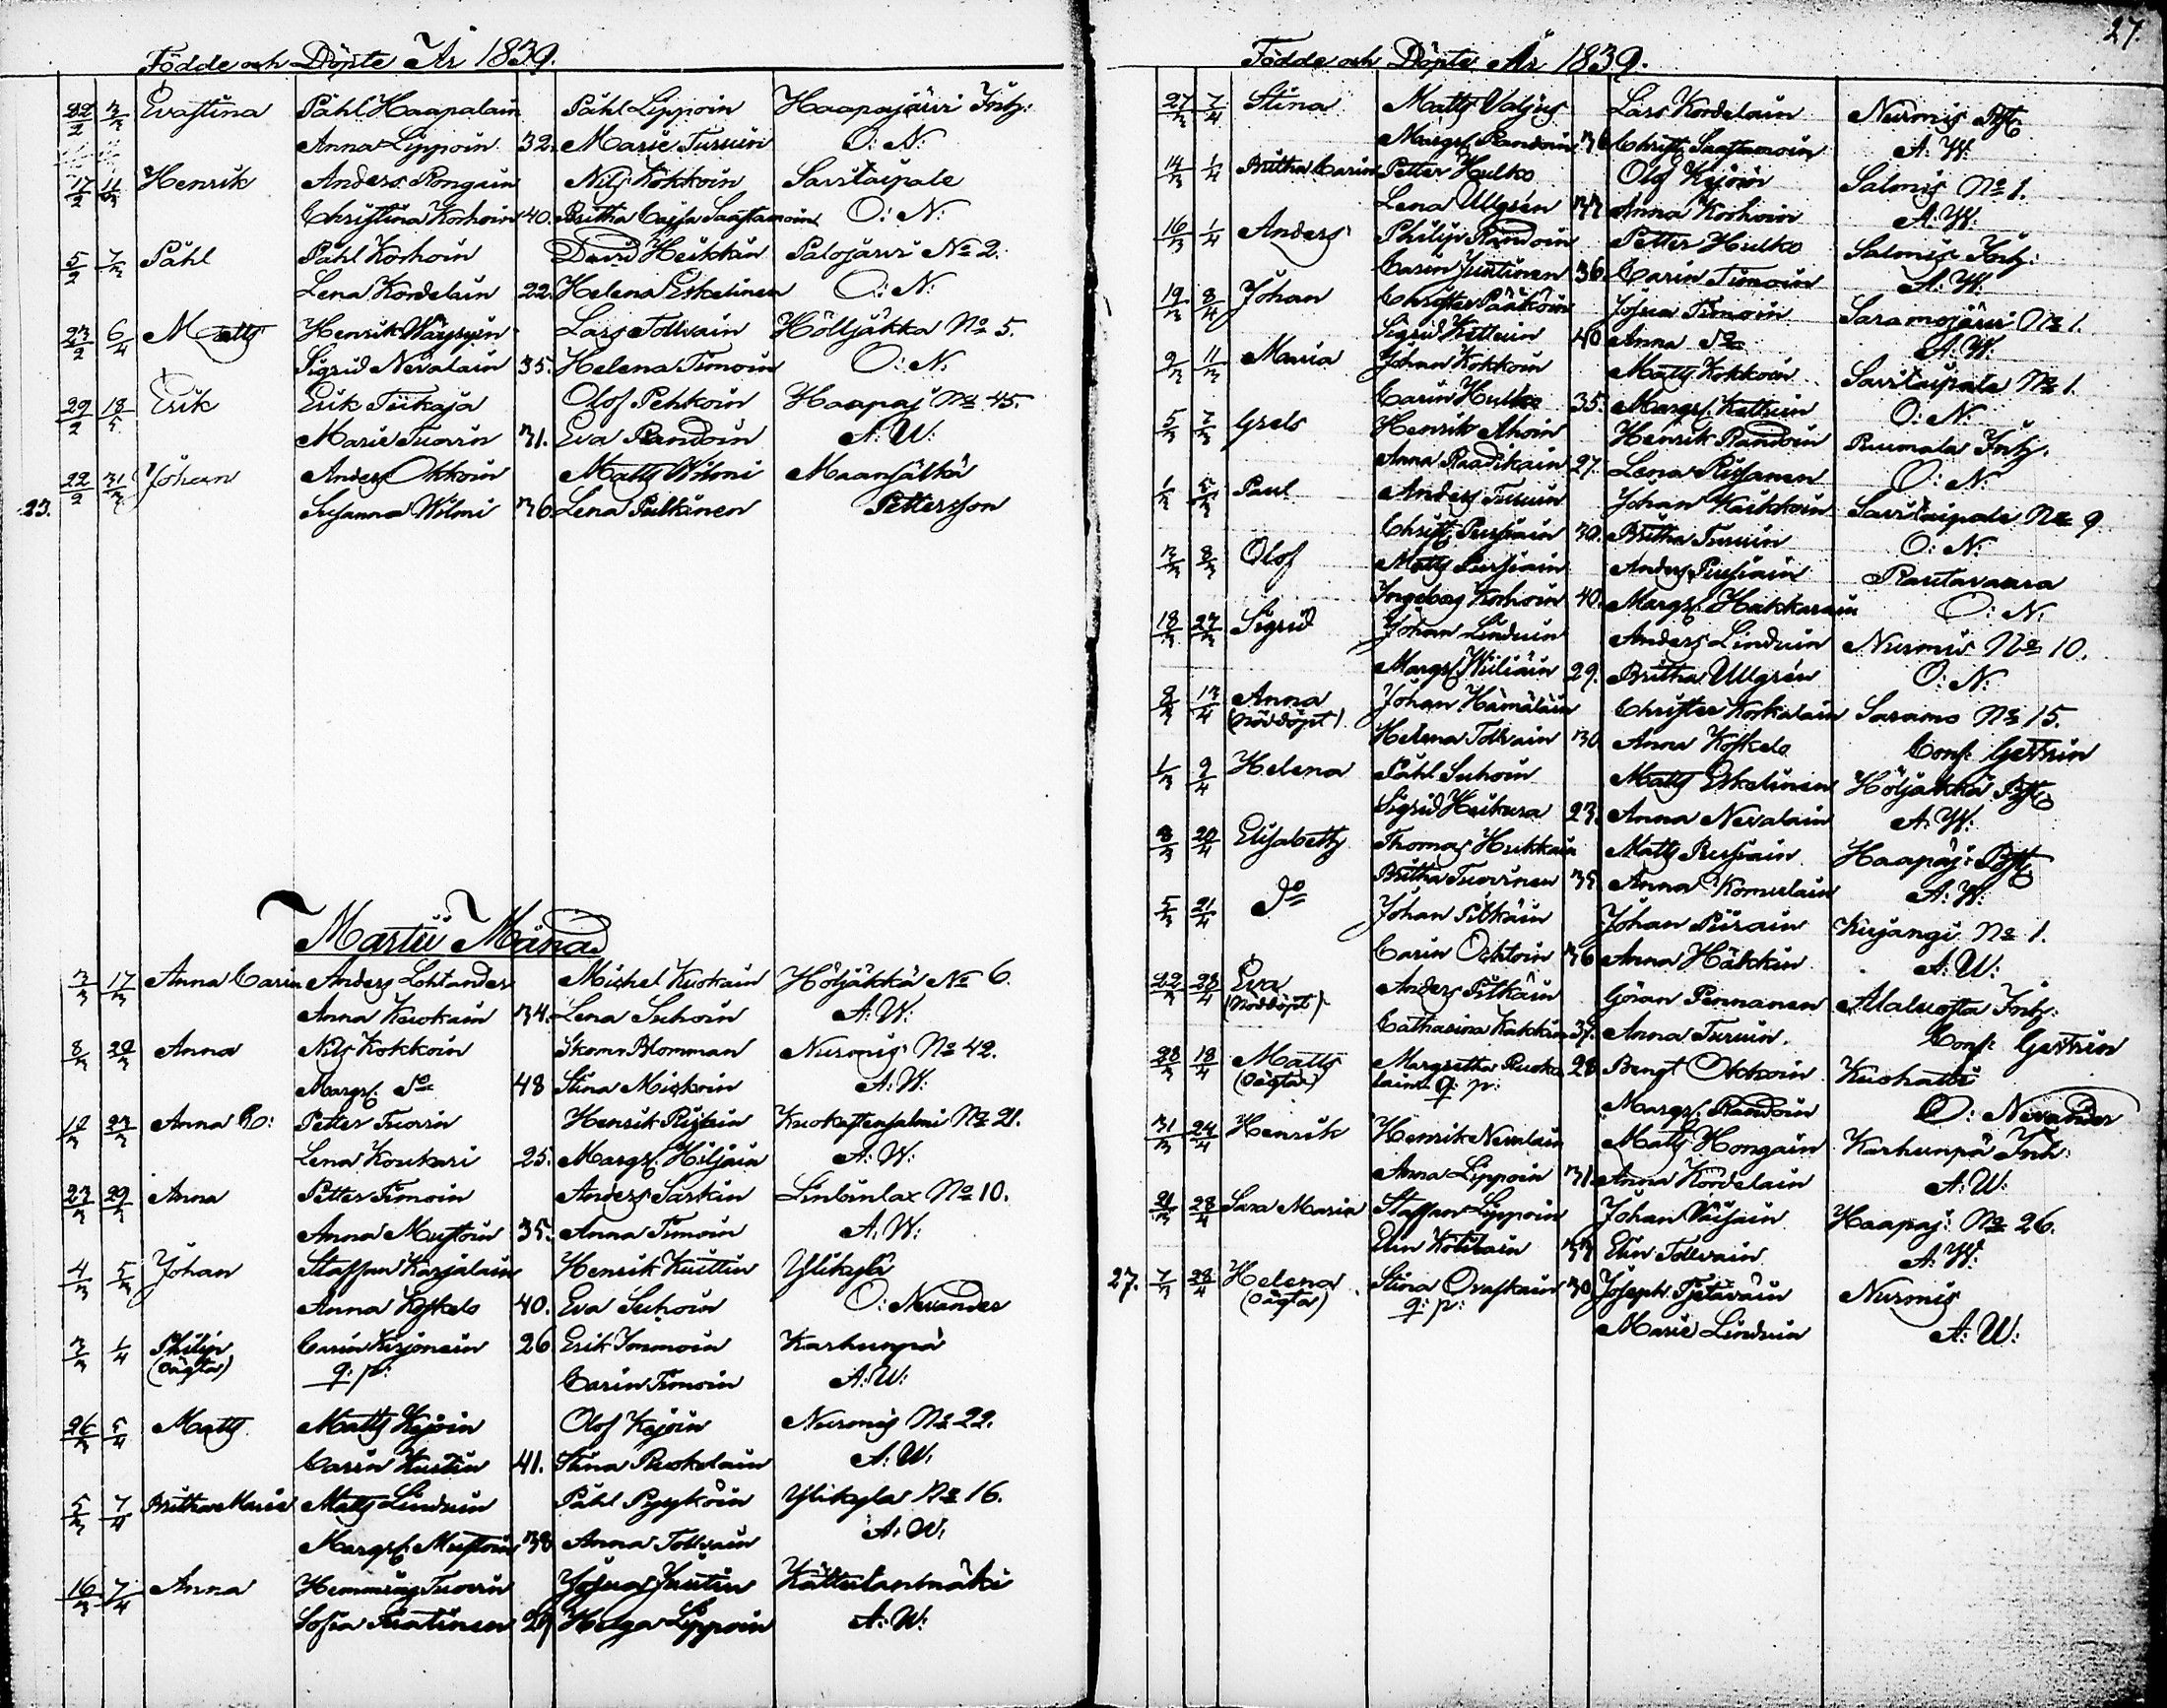 Födde och Döpte År 1839.
22/2 3/3 Evastina Påhl Haapalain Påhl Lippoin Haapajärvi Inh:
Anna Lippoin 32. Marie Turuin O: N:
17/2 11/3 Henrik Anders Rongain Nils Kokkoin Savikaipale
Christina Korhoin 40. Britha Cajsa Saastamoin O: N:
5/2 7/3 Påhl Påhl Korhoin David Heikkin Palojärvi No 2.
Lena Kordelain 22. Helena Eskelinen O: N:
23/2 6/4 Matts Henrik Wäyryin Lars Tollvain Höljäkkä No 5.
Sigrid Nevalain 35. Helena Timoin O: N.
29/2 18/5 Erik Erik Tiikaja Olof Pehkoin Haapaj No 45.
Marie Tuovin 31. Eva Randoin A: W:
22/2 31/3 Johan Anders Okkoin Matts Wilmi Maanselkä
23. Susanna Wilmi 36 Lena Pulkinen Pettersson
Martii Månad
3/3 17/3 Anna Carin Anders Lohtander Michel Kuokain Höljäkkä No 6.
Anna Kuokain 34. Lena Suhoin A: W:
8/3 20/3 Anna Nils Kokkoin Skom Blomman Nurmis No 42.
Margr. Do 48 Stina Mickoin A: W:
12/3 23/3 Anna B: Petter Tuovin Henrik Pistain Kuokastensalmi No 21.
Lena Koukari 25. Margr. Hiljain A: W:
23/3 29/3 Anna Petter Timoin Anders Sarkin Linlinlax No 10.
Anna Mustoin 35. Anna Timoin A: W:
4/3 5/3 Johan Staffan Karjalain Henrik Kuittin Ylikylä
Anna Koskelo 40. Eva Suhoin O: Nevander
3/3 1/4 Philip Carin Kirjonein 26 Erik Immoin Karhunpä
(oägta) q: p: Carin Timoin A: W:
26/3 5/4 Matts Matts Kejoin Olof Kejoin Nurmis No 22.
Carin Kuitin 41. Stina Ruokolain A: W:
5/3 7/4 Britha Maria Matts Linduin Påhl Pyyköin Ylikylä No 16.
Margr. Mustoin 38 Anna Tollvain A: W:
16/3 7/4 Anna Hemming Tuovin Josua Juutin Kättulanmäki
Sofia Juutinen 29 Helga Lippoin A: W:
27.
Födde och Döpte År 1839.
27/3 7/4 Stina Matts Valjus Lars Kordelain Nurmis
Margr. Randoin 36 Christ. Saastamoin A: W:
14/3 1/4 Britha Carin Petter Hulko Olof Kejoin Salmis No 1.
Lena Ullgrén 33 Anna Korhoin A: W:
16/3 1/4 Anders Philip Randoin Petter Hulko Salmis Inh:
Carin Juutinen 36. Carin Timoin A: W:
19/3 8/4 Johan Christer Pääköin Josua Timoin Saramojärvi No 1.
Sigrid Kettuin 40 Anna Do A: W:
9/3 11/3 Maria Johan Kokkoin Matts Kokkoin Savikaipale No 1.
Carin Hulko 35. Margr. Kettuin O: N:
5/3 7/3 Grels Henrik Ahoin Henrik Randoin Rumala Inh:
Anna Raadikain 27. Lena Rissanen O: N:
1/3 5/3 Paul Anders Turuin Johan Kaikkoin Savikaipale No 9
Christ. Pursiain 30. Britha Turuin O: N:
3/3 8/3 Olof Matts Pursiain Anders Pursiain Rautavaara
Ingeborg Korhoin 40. Margr. Hakkarain O: N:
18/3 24/3 Sigrid Johan Linduin Anders Linduin Nurmis No 10.
Margr. Wiiliäin 29. Britha Ullgrén O: N:
8/3 13/4 Anna Johan Hämäläin Christer Korkalain Saramo No 15.
(nöddöpt) Helena Tollvain 30 Anna Koskelo Conr. Gestrin
1/3 9/4 Helena Påhl Suhoin Matts Eskelinen Höljäkkä
Sigrid Heikura 23. Anna Nevalain A: W:
8/3 20/4 Elisabeth Thomas Heikkain Matts Pursiain Haapaj:
Britha Tuovinen 35 Anna Komulain A: W:
5/3 21/4 Do Johan Pitkäin Johan Piirain Kirjangi No 1.
Carin Ocktoin 36 Anna Häkkin A: W:
22/3 28/4 Eva Anders Pitkäin Göran Pennanen Alaluosta Inh:
(nöddöpt) Catharina Kakkin 37. Anna Turuin. Conr. Gestrin
28/3 18/4 Matts Margretha Ruoko 28 Bengt Okkoin Kuohatti
(oägta) lain q: p: Margr. Randoin O: Nevander
31/3 24/4 Henrik Henrik Nevalain Matts Hongain Karhunpä Inh:
Anna Lippoin 31. Anna Kordelain A: W:
21/3 28/4 Sara Maria Staffan Lippoin Johan Väisäin Haapaj: No 26.
Elin Kotilain 33 Elin Tollvain A: W:
27. 7/3 28/4 Helena Stina Ovaskain 30 Joseph Tjetäväin Nurmis
(oägta) q: p: Marie Linduin A: W: